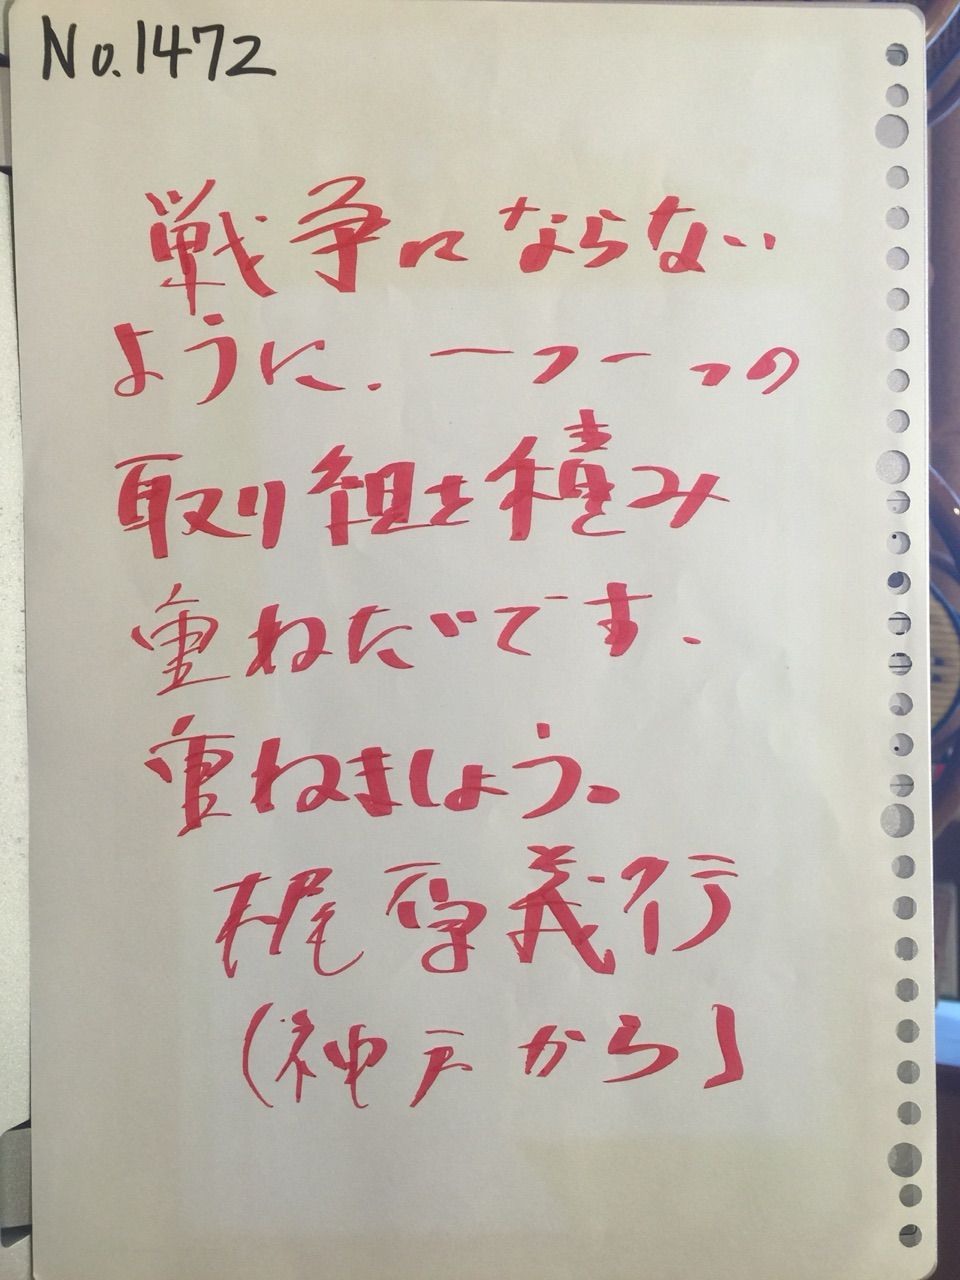 No.1472
戦争にならない
ように、一つ一つの
取り組を積み
重ねだです、
重ねましょう。
梶原義行
(神戸から)